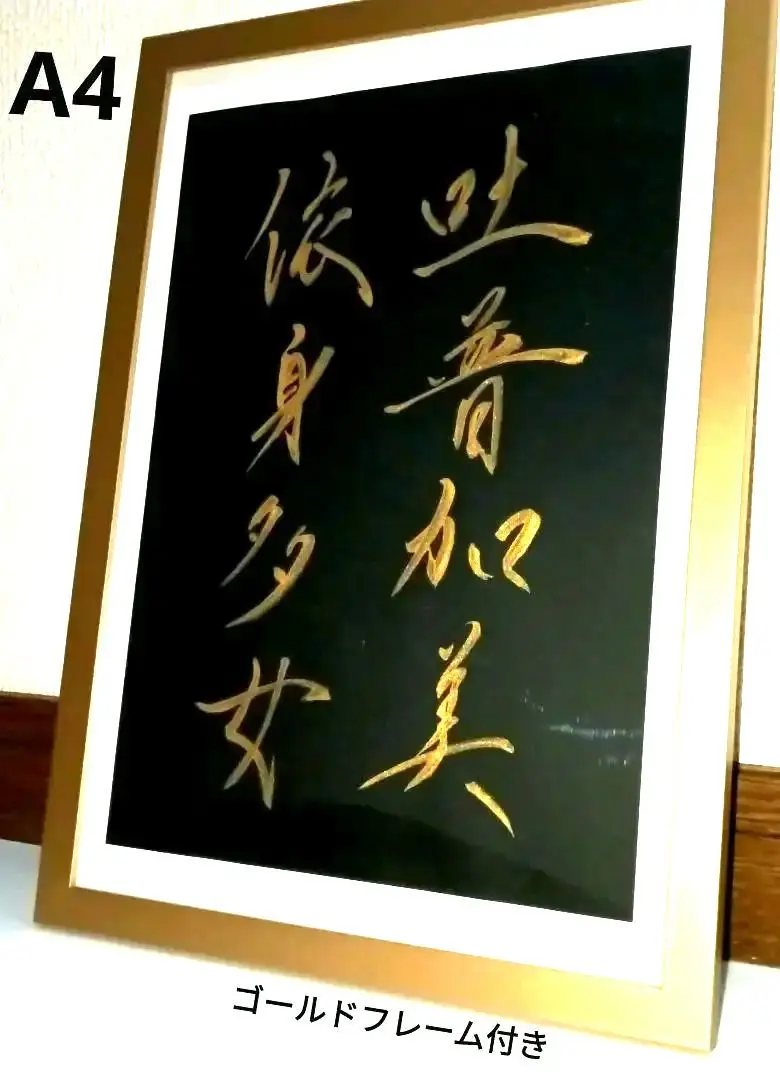 A4
吐普加美
依身多女
ゴールドフレーム付き